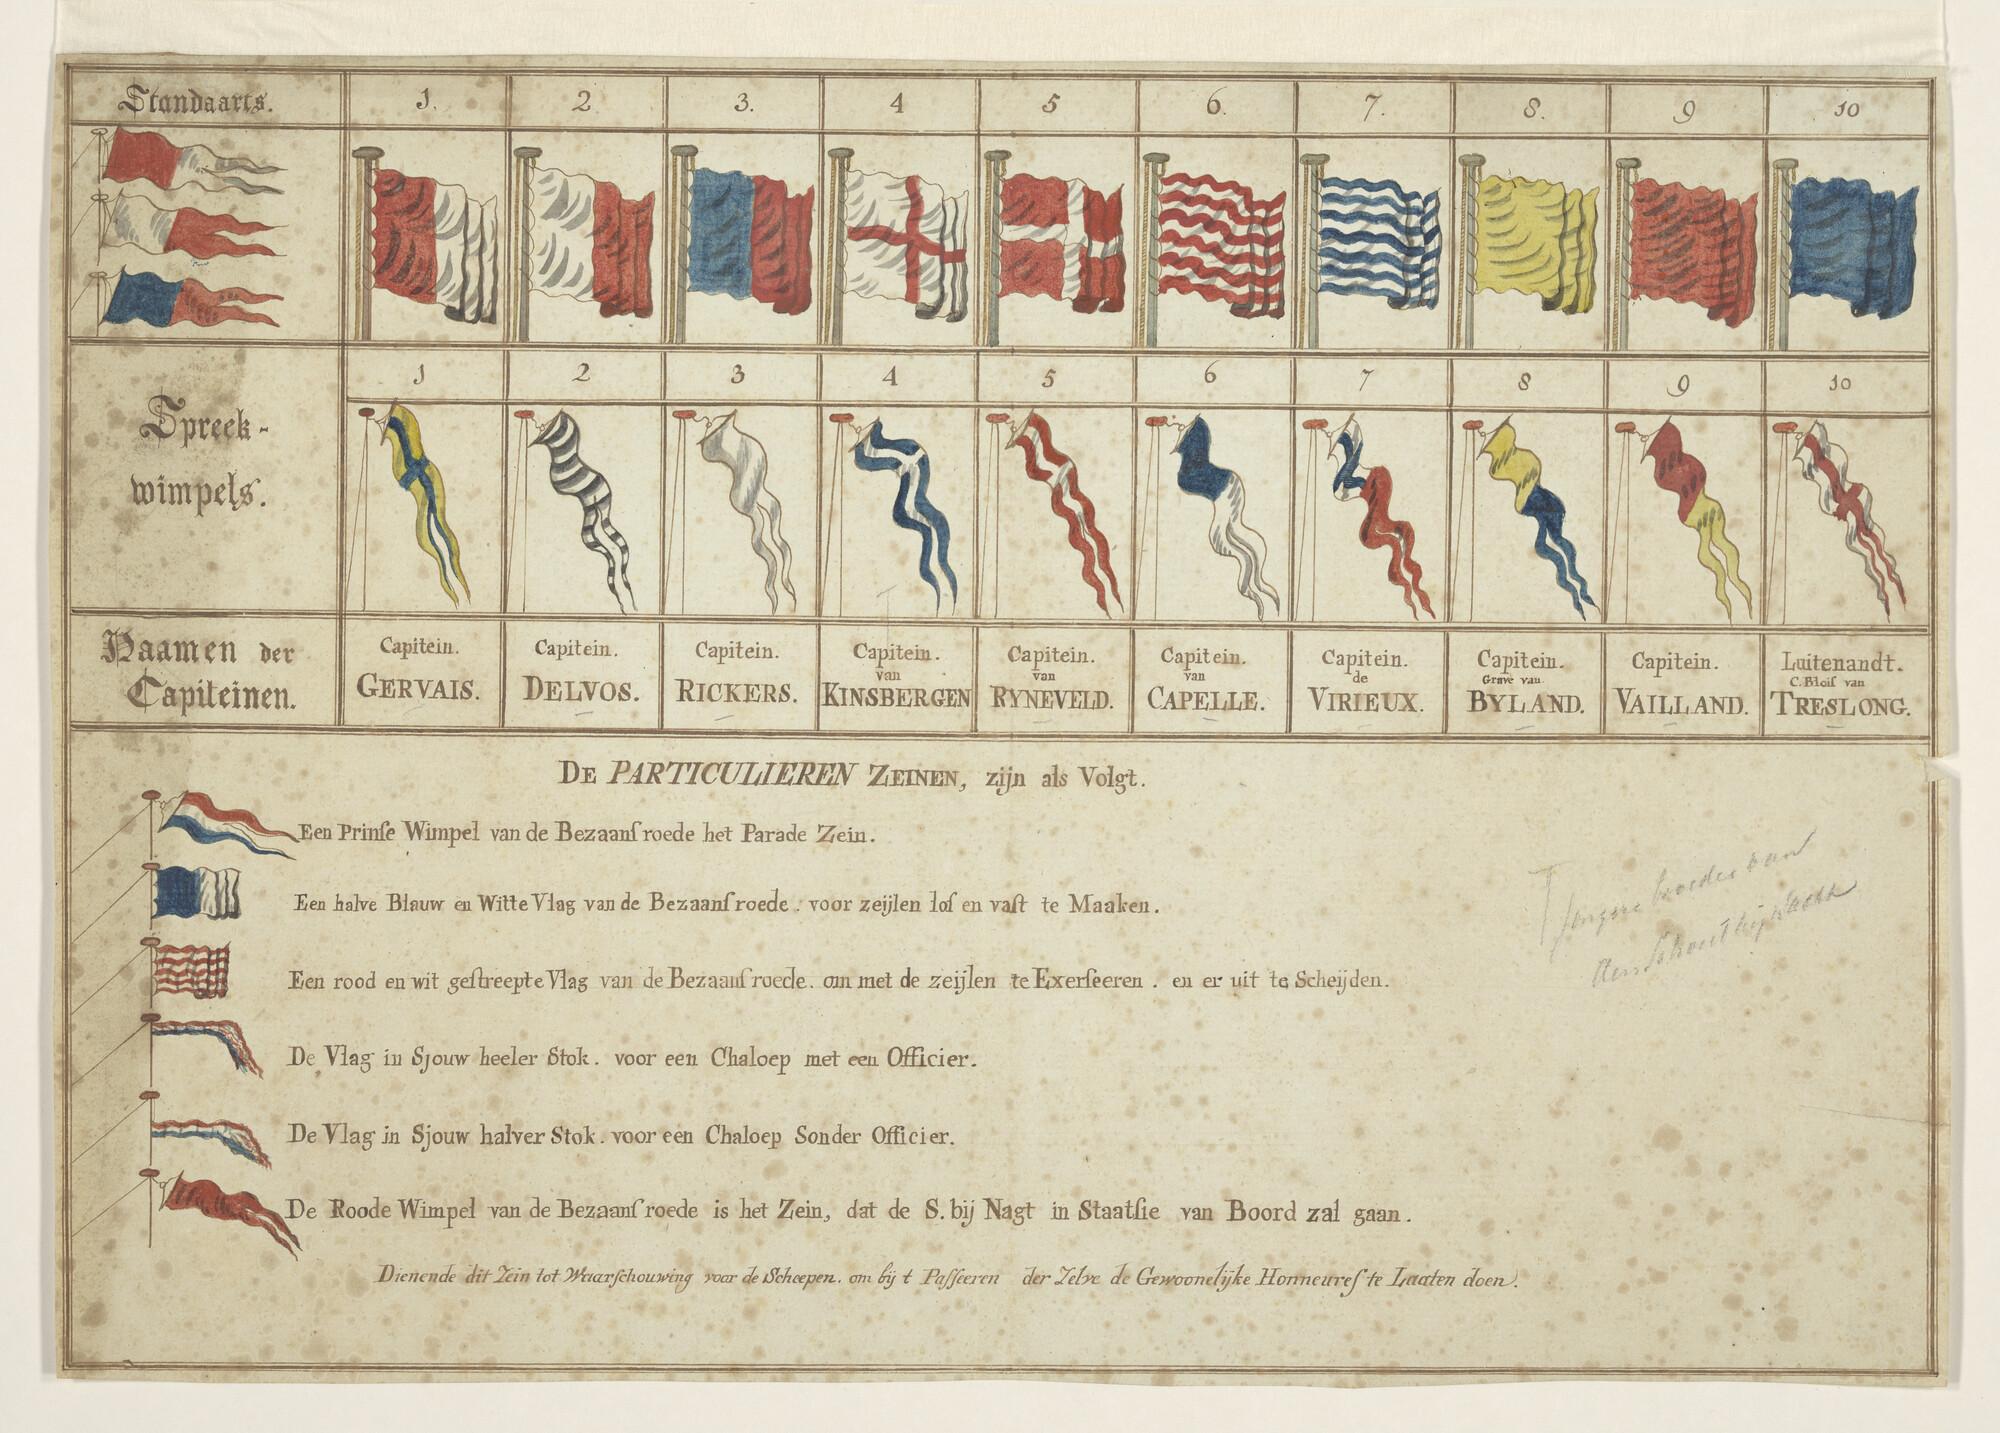 Standaarts. 1. 2 3. 4 5 6. 7. 8. 9 10
Spreek-
wimpels.
1 2 3 4 5 6 7 8 9 10
Naamen der
Capiteinen.
Capitein.
GERVAIS.
Capitein.
DELVOS.
Capitein.
RICKERS.
Capitein.
van
KINSBERGEN
Capitein.
van
RYNEVELD.
Capitein.
van
CAPELLE.
Capitein.
de
VIRIEUX.
Capitein.
Grave van
BYLAND.
Capitein.
VAILLAND.
Luitenandt.
C. Bloiſ van
TRESLONG.
DE PARTICULIEREN ZEINEN, zijn als Volgt.
Een Prinſe Wimpel van de Bezaanſroede het Parade Zein.
Een halve Blauw en Witte Vlag van de Bezaanſroede. voor zeijlen loſ en vaſt te Maaken.
Een rood en wit geſtreepte Vlag van de Bezaanſroede. om met de zeijlen te Exerſeeren. en er uit te Scheijden.
De Vlag in Sjouw heeler Stok. voor een Chaloep met een Officier.
De Vlag in Sjouw halver Stok. voor een Chaloep Sonder Officier.
De Roode Wimpel van de Bezaanſroede is het Zein, dat de S. bij Nagt in Staatſie van Boord zal gaan.
Dienende dit Zein tot Waarſchouwing voor de Scheepen. om bij t Paſſeeren der Zelve de Gewoonelijke Honneureſ te Laaten doen.
Jongere broeder van